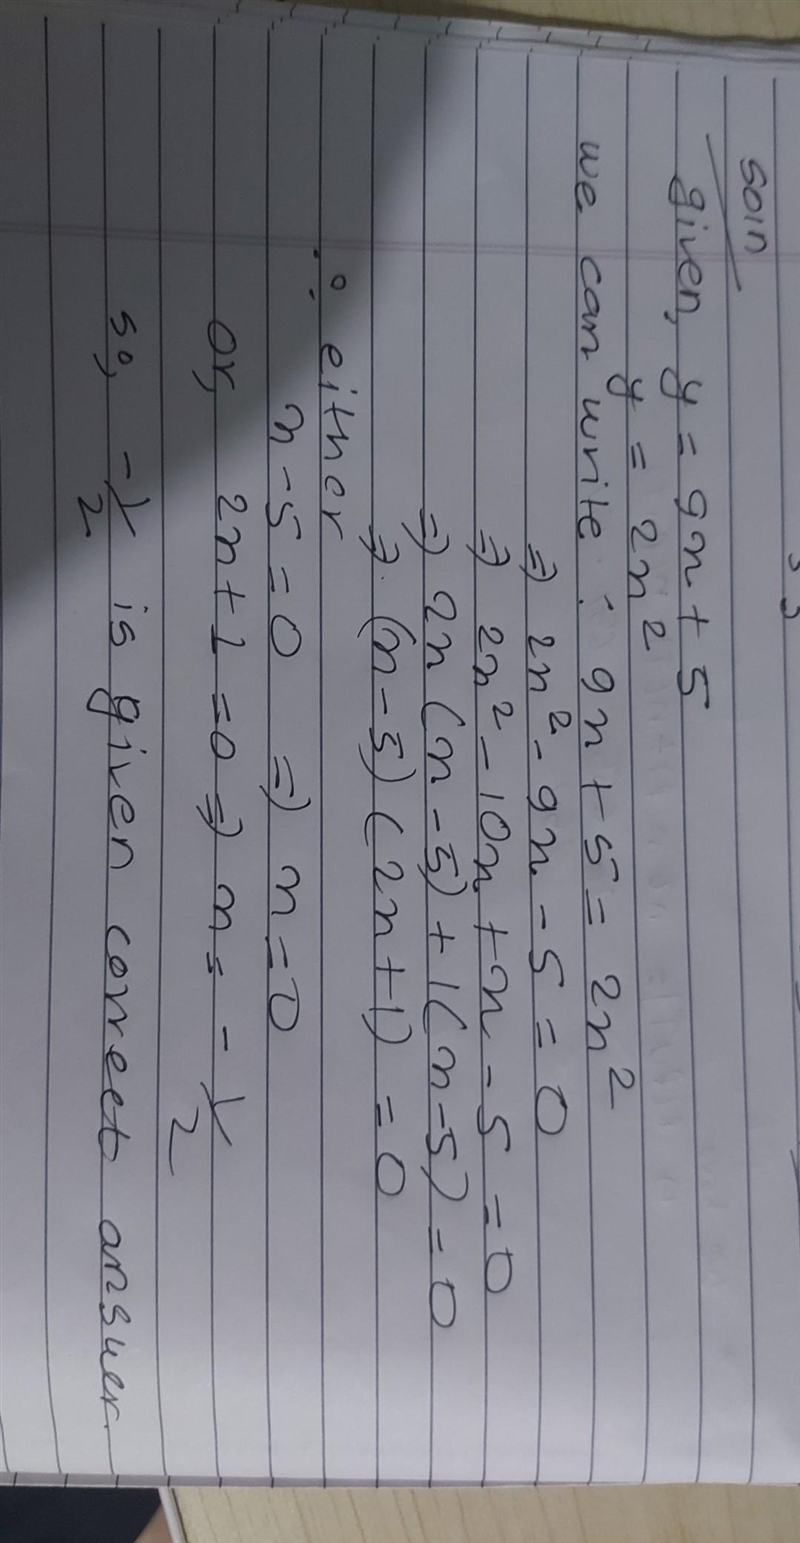 soln
given, y = 9x + 5
y = 2x²
we can write : 9x + 5 = 2x²
⇒ 2x² - 9x - 5 = 0
⇒ 2x² - 10x + x - 5 = 0
⇒ 2x (x - 5) + 1(x - 5) = 0
⇒ (x - 5) (2x + 1) = 0
∴ either
x - 5 = 0 ⇒ x = 0
or, 2x + 1 = 0 ⇒ x = - 1/2
so, - 1/2 is given correct answer.